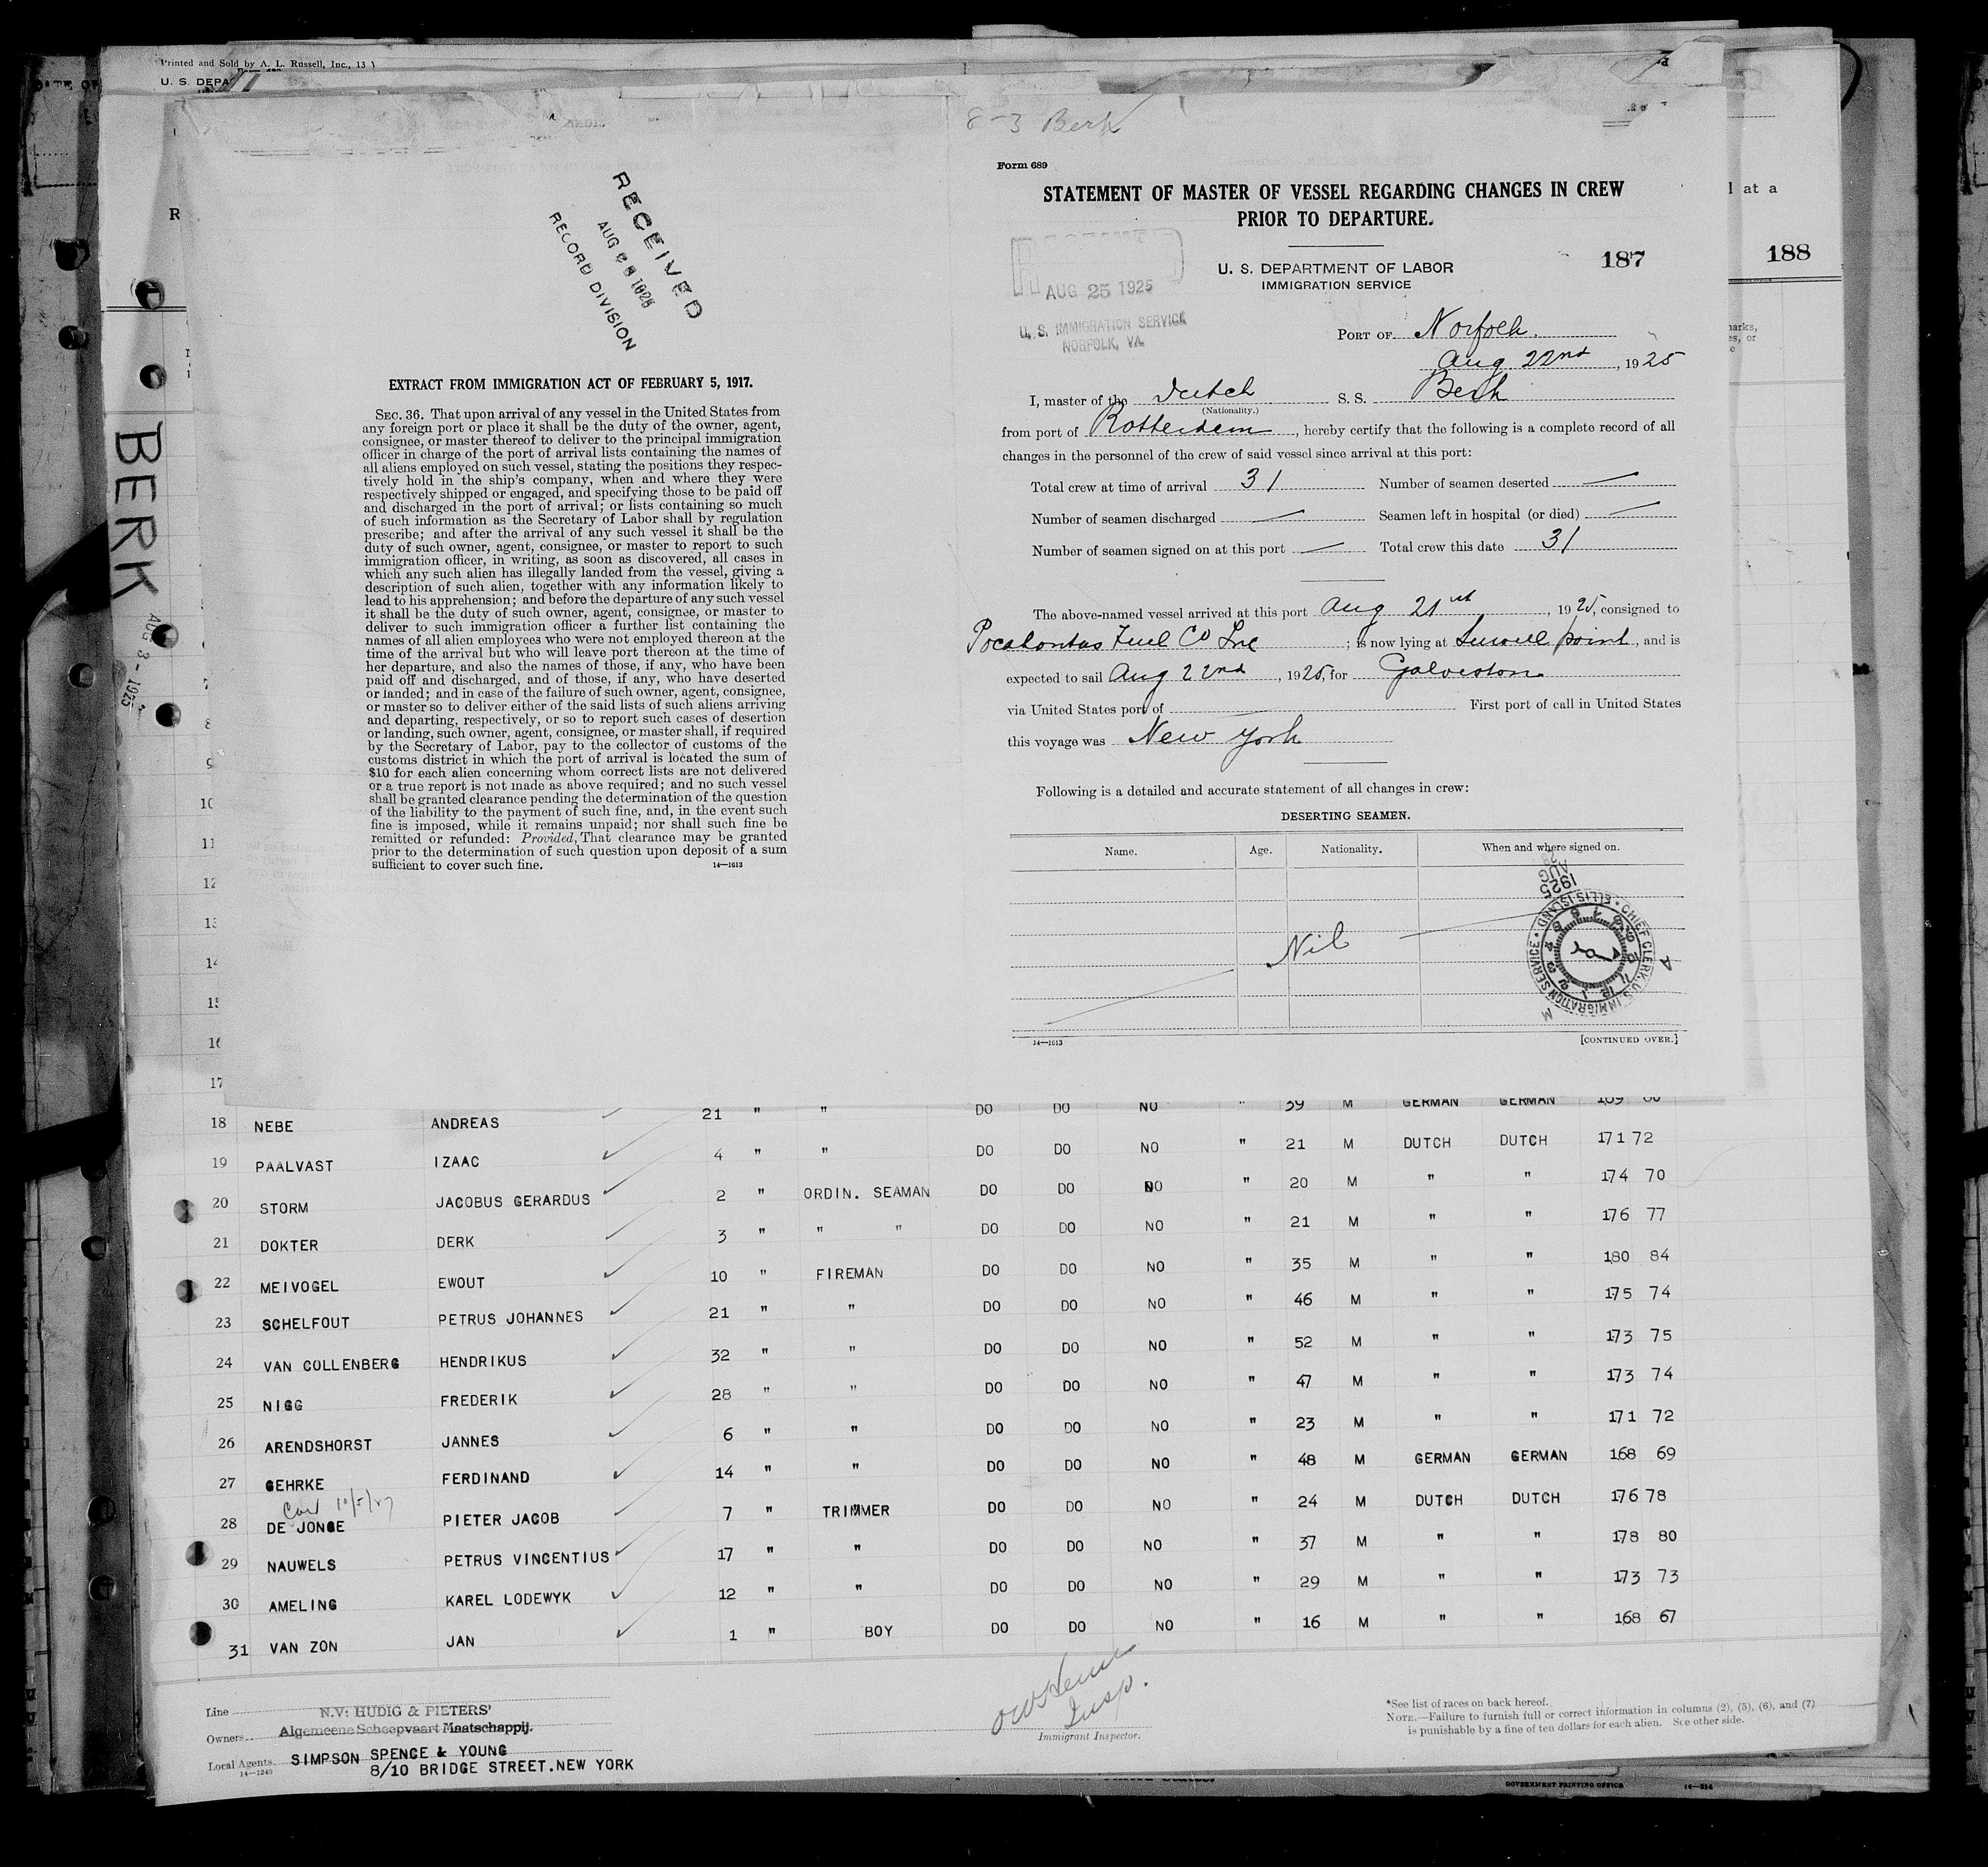 Printed and Sold by A. L. Russell, Inc., 13
U. S. DEPA
8-3 Berk
RECEIVED
AUG 28 1925
RECORD DIVISION
EXTRACT FROM IMMIGRATION ACT OF FEBRUARY 5, 1917.
SEC. 36. That upon arrival of any vessel in the United States from
any foreign port or place it shall be the duty of the owner, agent,
consignee, or master thereof to deliver to the principal immigration
officer in charge of the port of arrival lists containing the names of
all aliens employed on such vessel, stating the positions they respec-
tively hold in the ship's company, when and where they were
respectively shipped or engaged, and specifying those to be paid off
and discharged in the port of arrival; or lists containing so much
of such information as the Secretary of Labor shall by regulation
prescribe; and after the arrival of any such vessel it shall be the
duty of such owner, agent, consignee, or master to report to such
immigration officer, in writing, as soon as discovered, all cases in
which any such alien has illegally landed from the vessel, giving a
description of such alien, together with any information likely to
lead to his apprehension; and before the departure of any such vessel
it shall be the duty of such owner, agent, consignee, or master to
deliver to such immigration officer a further list containing the
names of all alien employees who were not employed thereon at the
time of the arrival but who will leave port thereon at the time of
her departure, and also the names of those, if any, who have been
paid off and discharged, and of those, if any, who have deserted
or landed; and in case of the failure of such owner, agent, consignee,
or master so to deliver either of the said lists of such aliens arriving
and departing, respectively, or so to report such cases of desertion
or landing, such owner, agent, consignee, or master shall, if required
by the Secretary of Labor, pay to the collector of customs of the
customs district in which the port of arrival is located the sum of
$10 for each alien concerning whom correct lists are not delivered
or a true report is not made as above required; and no such vessel
shall be granted clearance pending the determination of the question
of the liability to the payment of such fine, and, in the event such
fine is imposed, while it remains unpaid; nor shall such fine be
remitted or refunded: Provided, That clearance may be granted
prior to the determination of such question upon deposit of a sum
sufficient to cover such fine. 14—1613
Form 689
STATEMENT OF MASTER OF VESSEL REGARDING CHANGES IN CREW
PRIOR TO DEPARTURE.
U. S. DEPARTMENT OF LABOR
IMMIGRATION SERVICE
187
188
l at a
AUG 25 1925
U. S. IMMIGRATION SERVICE
NORFOLK, VA.
PORT OF Norfolk.
Aug 22nd, 1925
I, master of the Dutch S. S. Berk
(Nationality.)
from port of Rotterdam, hereby certify that the following is a complete record of all
changes in the personnel of the crew of said vessel since arrival at this port:
Total crew at time of arrival 31 Number of seamen deserted —
Number of seamen discharged — Seamen left in hospital (or died) —
Number of seamen signed on at this port — Total crew this date 31
The above-named vessel arrived at this port Aug 21st, 1925, consigned to
Pocahontas Fuel Co Inc; is now lying at Sewell point, and is
expected to sail Aug 22nd, 1925, for Galveston
via United States port of — First port of call in United States
this voyage was New York
Following is a detailed and accurate statement of all changes in crew:
DESERTING SEAMEN.
Name. Age. Nationality. When and where signed on.
Nil
1925
AUG
CHIEF CLERK, U.S. IMMIGRATION SERVICE • ELLIS ISLAND •
14—1613 [CONTINUED OVER.]
BERK
AUG 3 - 1925
8
9
10
11
12
13
14
15
16
17
18 NEBE ANDREAS 21 " " DO DO NO " 39 M GERMAN GERMAN 169
19 PAALVAST IZAAC 4 " " DO DO NO " 21 M DUTCH DUTCH 171 72
20 STORM JACOBUS GERARDUS 2 " ORDIN. SEAMAN DO DO NO " 20 M " " 174 70
21 DOKTER DERK 3 " " " DO DO NO " 21 M " " 176 77
22 MEIVOGEL EWOUT 10 " FIREMAN DO DO NO " 35 M " " 180 84
23 SCHELFOUT PETRUS JOHANNES 21 " " DO DO NO " 46 M " " 175 74
24 VAN COLLENBERG HENDRIKUS 32 " " DO DO NO " 52 M " " 173 75
25 NIGG FREDERIK 28 " " DO DO NO " 47 M " " 173 74
26 ARENDSHORST JANNES 6 " " DO DO NO " 23 M " " 171 72
27 GEHRKE FERDINAND 14 " " DO DO NO " 48 M GERMAN GERMAN 168 69
28 DE JONGE PIETER JACOB 7 " TRIMMER DO DO NO " 24 M DUTCH DUTCH 176 78
29 NAUWELS PETRUS VINCENTIUS 17 " " DO DO NO " 37 M " " 178 80
30 AMELING KAREL LODEWYK 12 " " DO DO NO " 29 M " " 173 73
31 VAN ZON JAN 1 " BOY DO DO NO " 16 M " " 168 67
Line N.V: HUDIG & PIETERS'
Owners Algemeene Scheepvaart Maatschappij.
Local Agents SIMPSON SPENCE & YOUNG
14—1240 8/10 BRIDGE STREET.NEW YORK
Insp.
Immigrant Inspector.
*See list of races on back hereof.
NOTE.—Failure to furnish full or correct information in columns (2), (5), (6), and (7)
is punishable by a fine of ten dollars for each alien. See other side.
GOVERNMENT PRINTING OFFICE 14—314